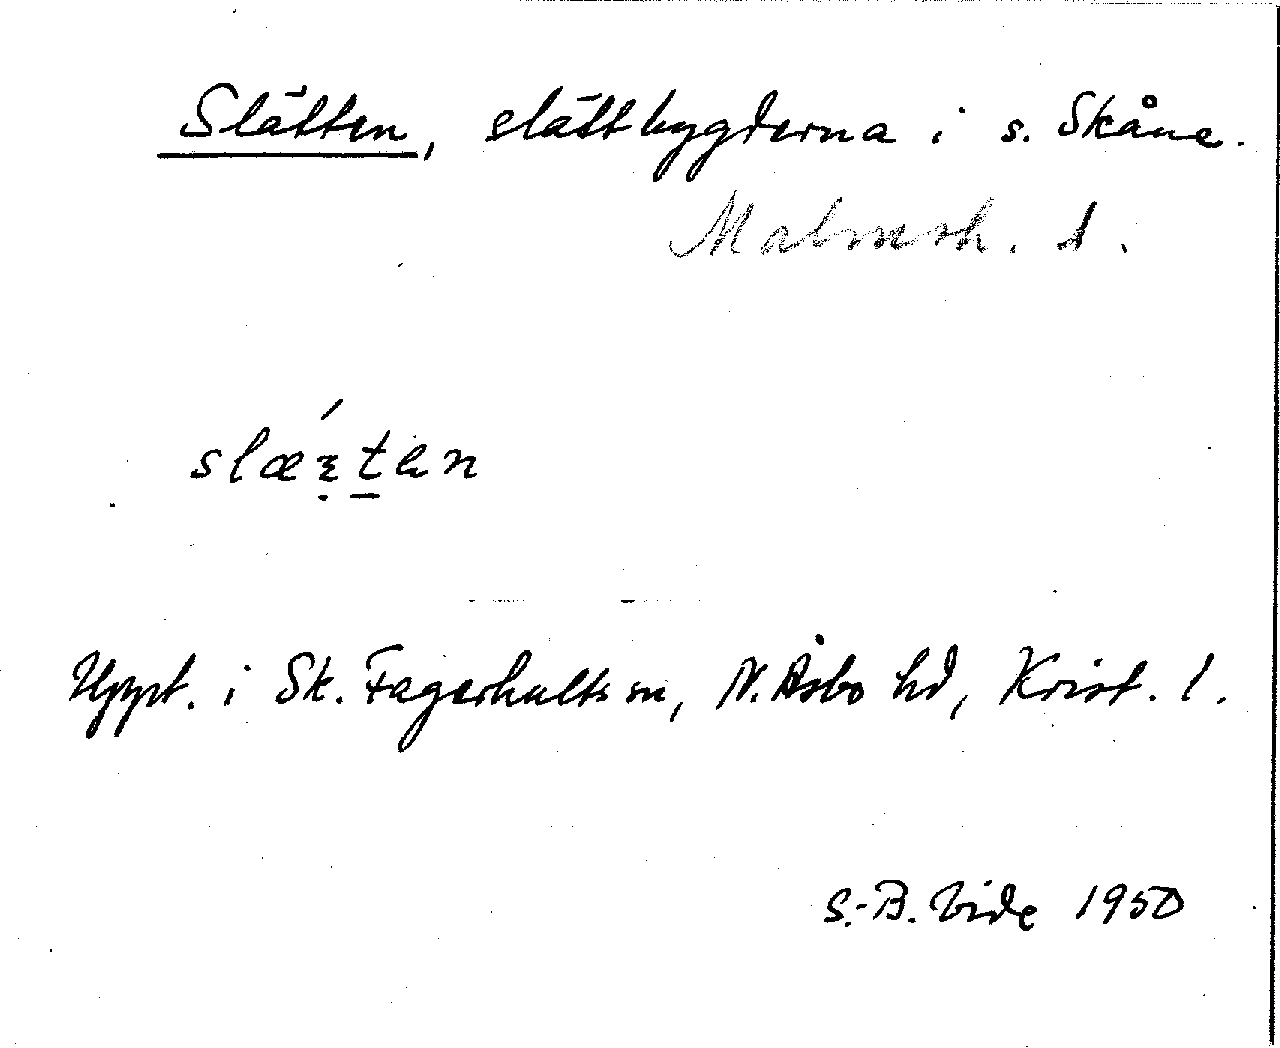 Slätten, slättbygderna i s. Skåne.
Malmöh. l.
slæ´tən
Uppt. i Sk. Fagerhults sn, N. Åsbo hd, Krist. l.
S.-B. Vide 1950